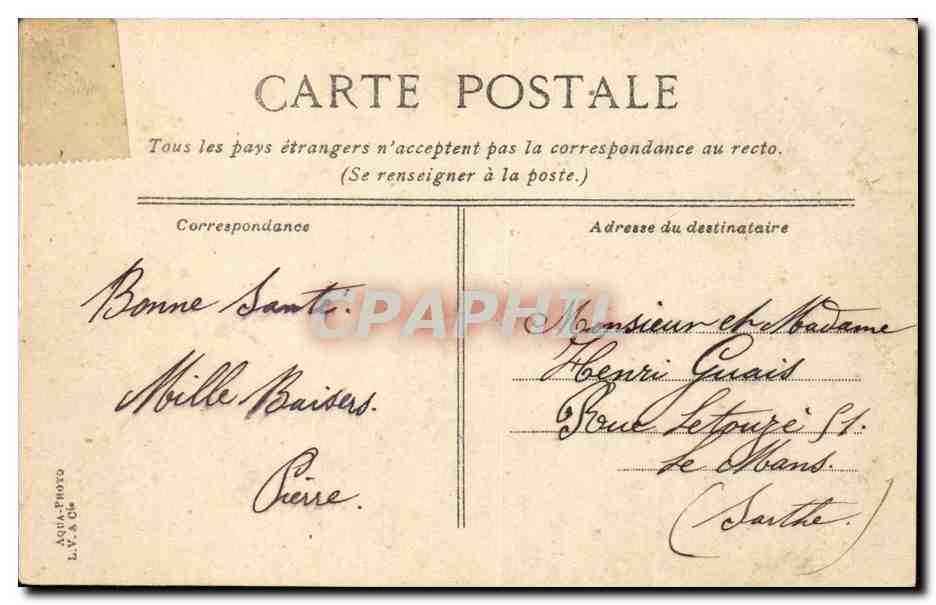 CARTE POSTALE
Tous les pays étrangers n'acceptent pas la correspondance au recto.
(Se renseigner à la poste.)
Correspondance
Bonne Santé.
Mille Baisers.
Pierre.
Adresse du destinataire
Monsieur et Madame
Henri Guais
Rue Letouzé 51.
Le Mans.
(Sarthe.)
AQUA-PHOTO
L.V. & Cie
CPAPHIL